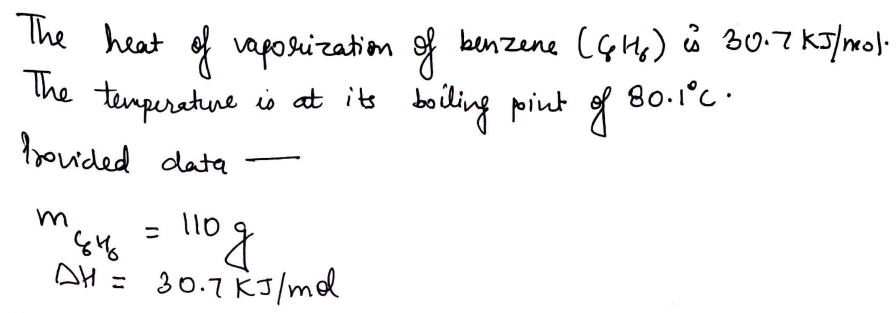 The heat of vaporization of benzene (C₆H₆) is 30.7 KJ/mol.
The temperature is at its boiling point of 80.1°C.
Provided data —
m C₆H₆ = 110 g
ΔH = 30.7 KJ/mol